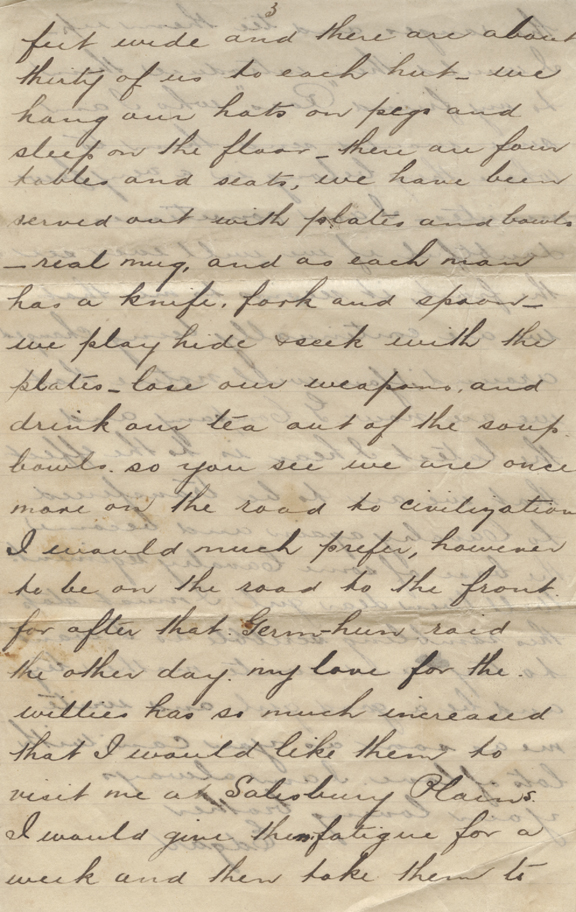 3
feet wide and there are about
thirty of us to each hut - we
hang our hats on pegs and
sleep on the floor - there are four
tables and seats, we have been
served out with plates and bowls
- real mug, and as each man
has a knife, fork and spoon -
we play hide & seek with the
plates - lose our weapons, and
drink our tea out of the soup
bowls. so you see we are once
more on the road to civilization
I would much prefer, however
to be on the road to the front.
for after that Germ-hun raid
the other day. my love for the
willies has so much increased
that I would like them to
visit me at Salisbury Plains.
I would give them fatigue for a
week and then take them to